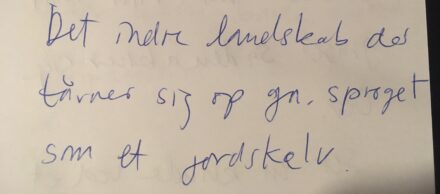 Det indre landskab der
tårner sig op gn. sproget
som et jordskælv